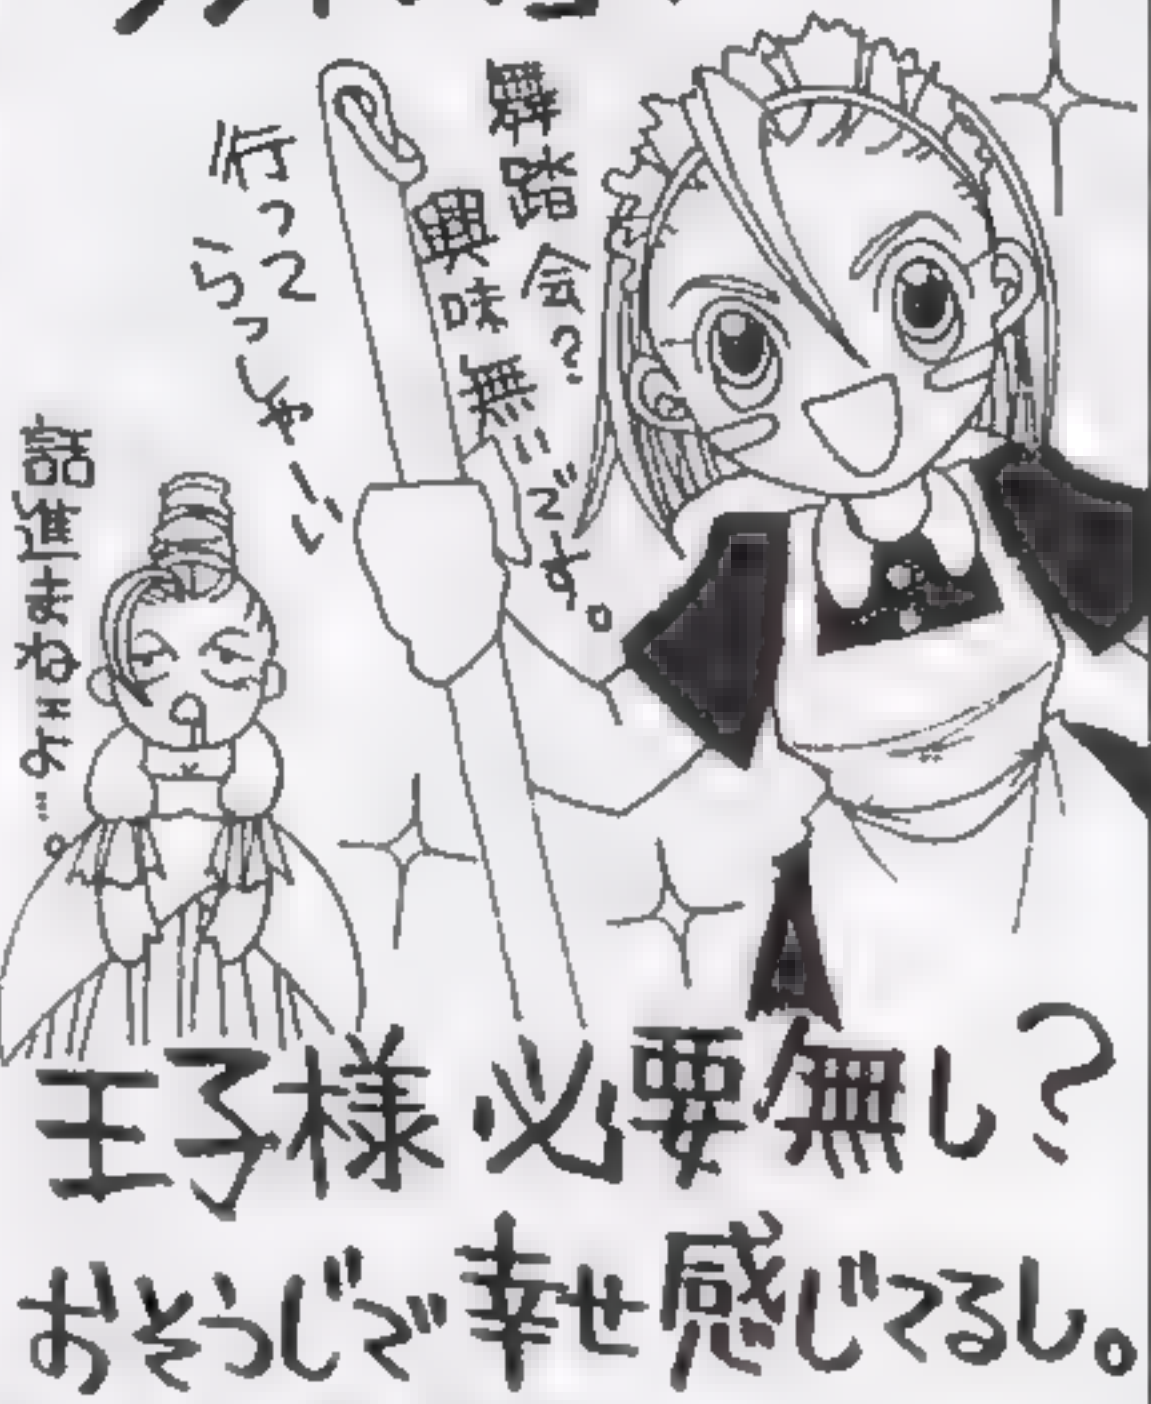 舞踏会?
興味無いです。
行って
らっしゃーい
話進まねェな…。
王子様必要無し?
おそうじで幸せ感じてるし。